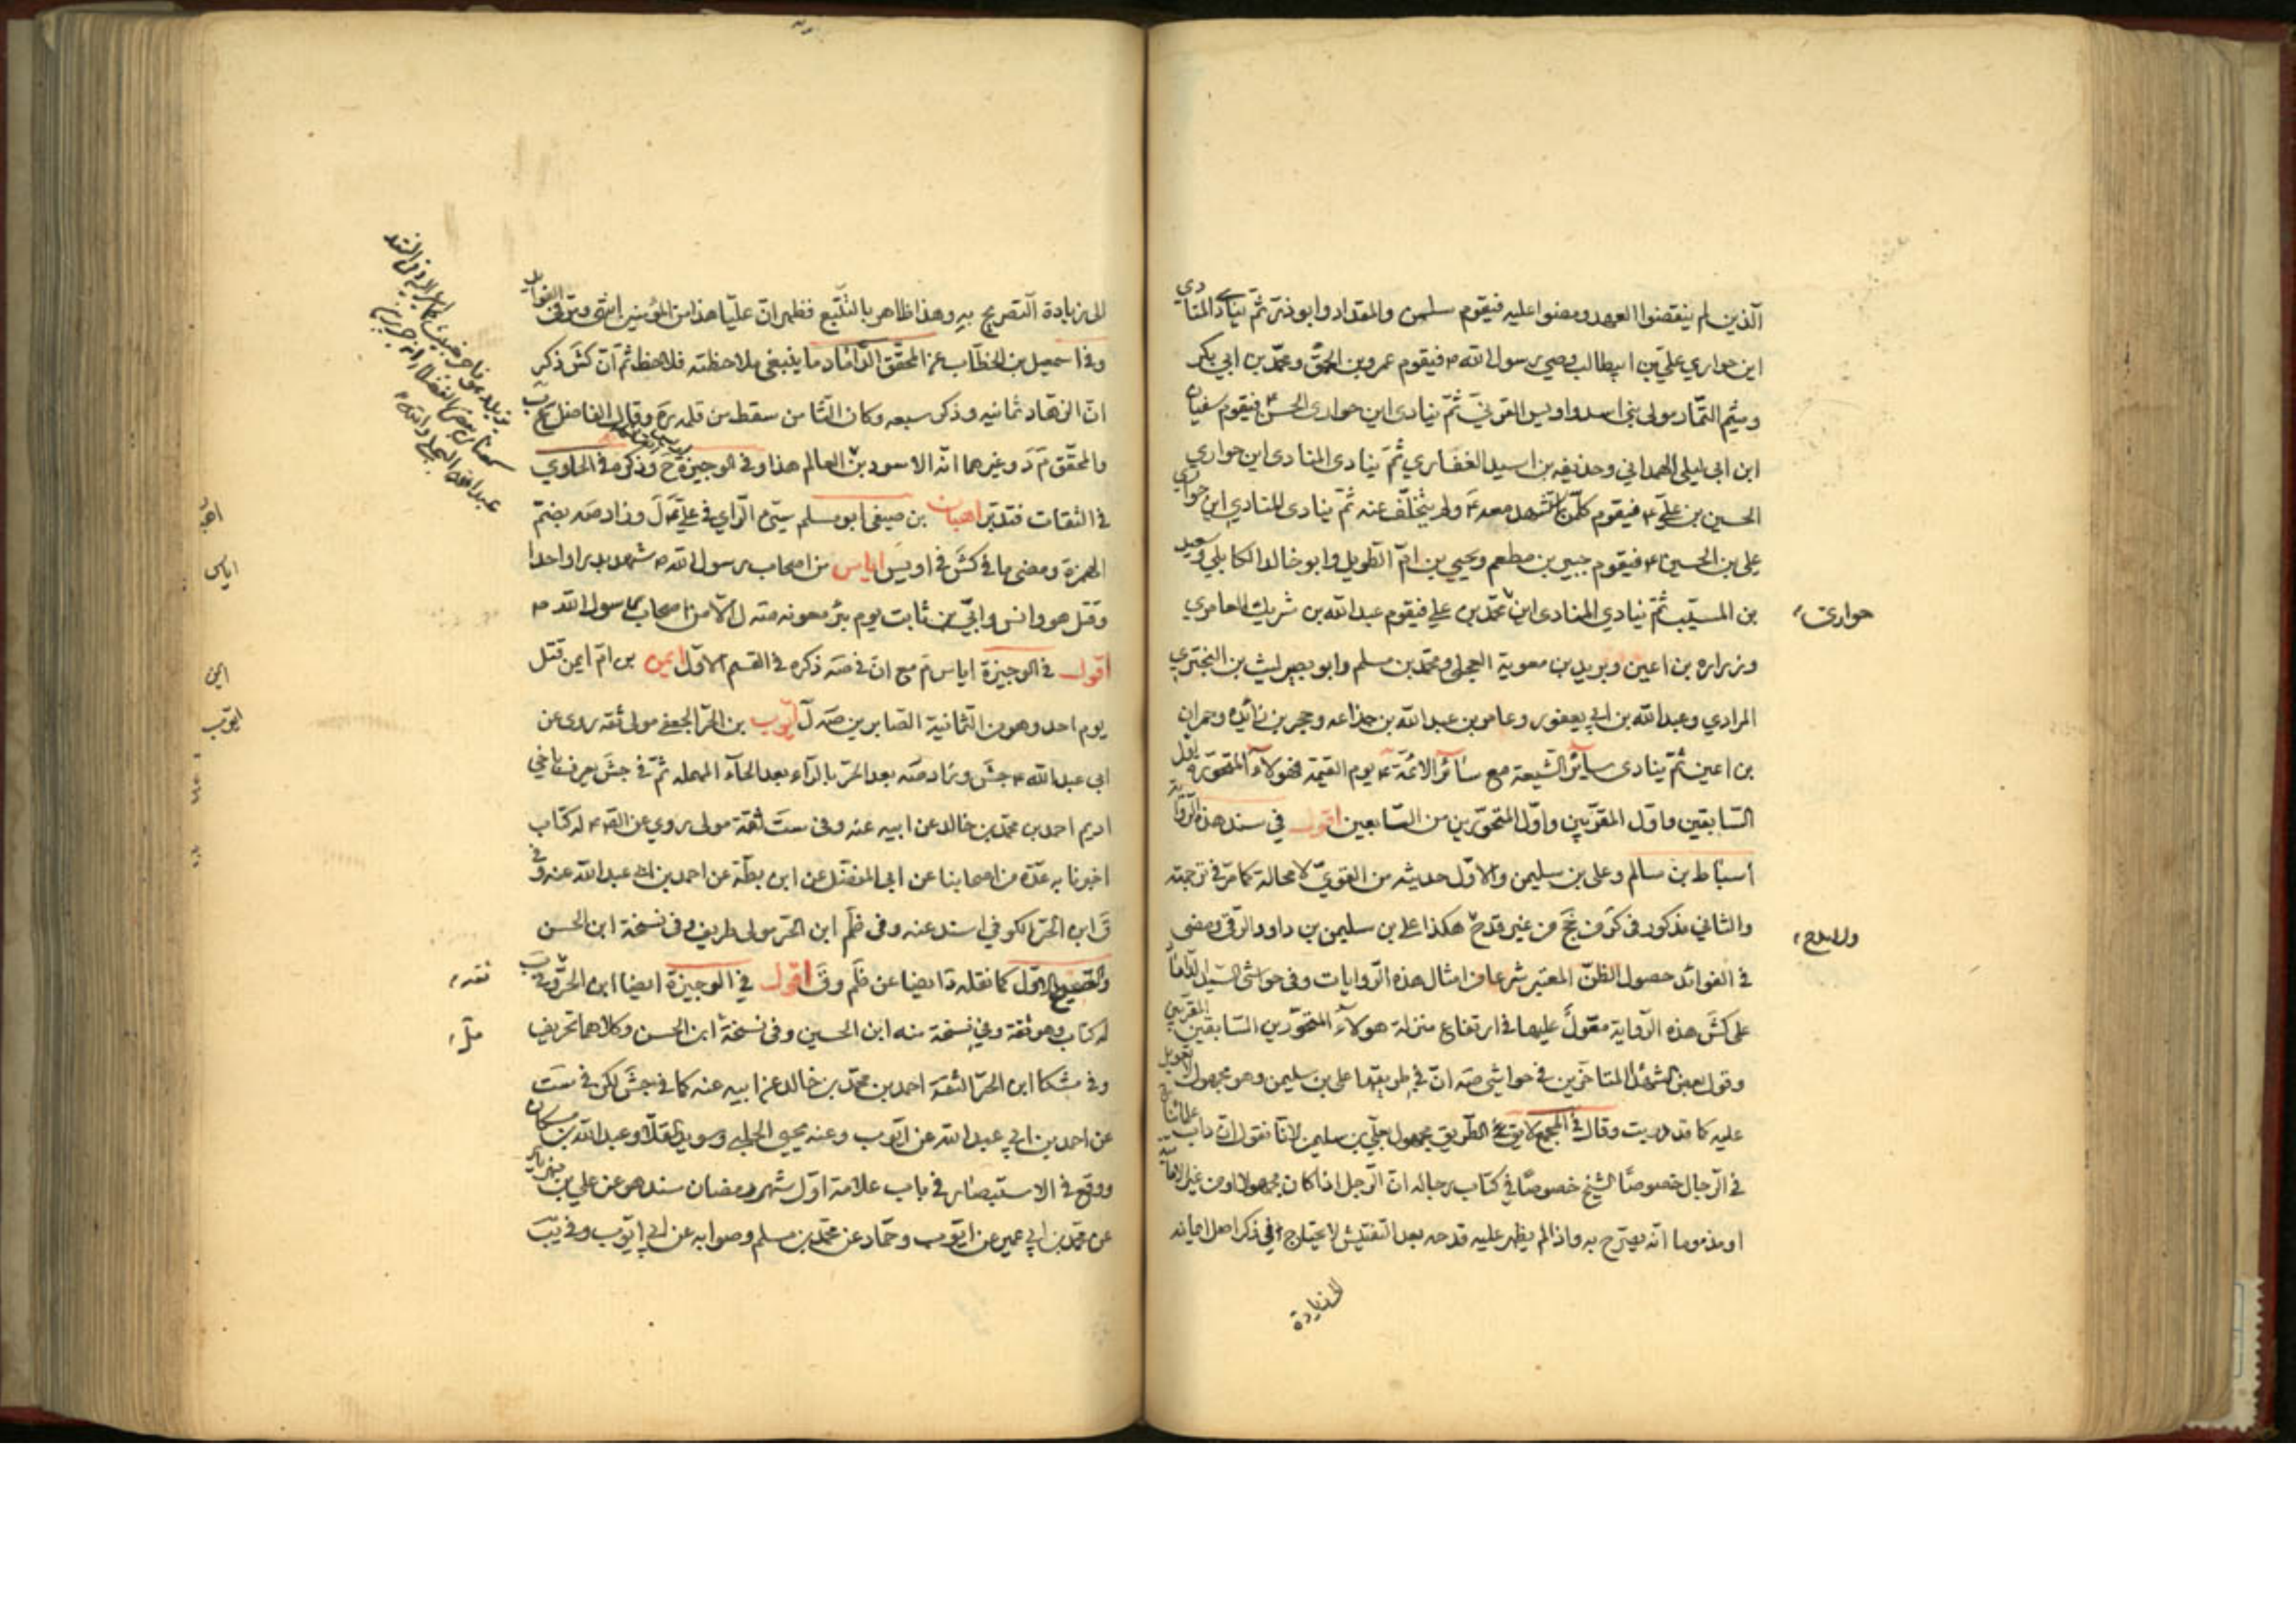 الذين لم ينقضوا العهد ومضوا عليه فيقوم سلمن والمقداد وابوذر ثم ينادي المنادي
اين حواري علي بن ابيطالب وصي رسول الله ص فيقوم عمرو بن الحمق ومحمد بن ابي بكر
وميثم التمار مولى بني اسد واويس القرني ثم ينادى اين حواري الحسن ع فيقوم سفيان
ابن ابي ليلى الهمداني وحذيفه بن اسيد الغفاري ثم ينادى المنادى اين حواري
الحسين بن علي ع فيقوم كل من استشهد معه ع ولم يتخلف عنه ثم ينادى المنادي اين حواري
علي بن الحسين ع فيقوم جبير بن مطعم ويحيى بن ام الطويل وابو خالد الكابلي وسعيد
بن المسيب ثم ينادي المنادى اين محمد بن علي فيقوم عبد الله بن شريك العامري
حواري
وزراره بن اعين وبريد بن معوية العجلي ومحمد بن مسلم وابو بصير ليث بن البختري
المرادي وعبد الله بن ابي يعفور وعامر بن عبد الله بن جذاعه وحجر بن زائده وحمران
بن اعين ثم ينادى سائر الشيعة مع سائر الائمة ع يوم القيمة فهولاء المتحورة اول
السابقين واول المقربين واول المتحورين من التابعين اقول في سند هذه الرواية
أسباط بن سالم وعلي بن سليمن والاول حديثه من القوي لا محالة كما مر في ترجمته
والثاني مذكور في كش في جخ من غير قدح هكذا علي بن سليمن بن داود الرقي ومضى
ولا مدح
في الفوائد حصول الظن المعتبر شرعا من امثال هذه الروايات وفي حواشي السيد الداماد
على كش هذه الرواية معول عليها في ارتفاع منزلة هولاء المتحورين السابقين المقربين
وقول بعض الشهداء المتاخرين في حواشي صه ان في طريقها علي بن سليمن وهو مجهول
عليه كما قد دريت وقال في المجمع لا يق الطريق مجهول بعلي بن سليمن لانا نقول ان داب علمائنا
في الرجال خصوصا الشيخ خصوصا في كتاب رجاله ان الرجل اذا كان مجهولا او من غير الامامية
او مذموما انه يصرح به واذا لم يظهر عليه قدحه بعد التفتيش لا يحتاج في ذكر اصل ايمانه
الى زيادة
الى زيادة التصريح به وهذا ظاهر بالتتبع فظهر ان عليا هذا من المؤمنين انتهى ومر في الفوايد
وفي اسمعيل بن الخطاب عن المحقق الداماد ما ينبغي ملاحظته فلاحظ ثم ان كش ذكر
ان الزهاد ثمانيه وذكر سبعه وكان الثامن سقط من قلمه ره وقال الفاضل
والمحقق م د وغيرهما انه الاسود بن العالم هذا وفي الوجيزة ح وذكره في الحاوي
في الثقات فتدبر اهبان بن صيفي ابو مسلم سيئ الراي في علي ع ل وزاد صه بضم
اهبا
الهمزة ومضى ما في كش في اويس اياس من اصحاب رسول الله ص شهد بدرا واحدا
اياس
وقتل هو وانس وابي بن ثابت يوم بئر معونه صه ل الا من اصحاب رسول الله ص
اقول في الوجيزة اياس م مع ان في صه ذكره في القسم الاول ايمن بن ام ايمن قتل
ايمن
يوم احد وهو من الثمانية الصابرين صه ل ايوب بن الحر الجعفي مولى ثقه روى عن
ايوب
ابي عبد الله ع جش وزاد صه بعد الحر بالراء بعد الحاء المهمله ثم في جش يعرف باخي
اديم احمد بن محمد بن خالد عن ابيه عنه وفي ست ثقة مولى روي عن الص ع له كتاب
اخبرنا به عدة من اصحابنا عن ابي المفضل عن ابن بطة عن احمد بن ابي عبد الله عنه وفي
ق ابن الحر الكوفي اسند عنه وفي ظم ابن الحر مولى طريف وفي نسخة ابن الحسن
والصحيح الاول كما نقله د ايضا عن ظم وق اقول في الوجيزة ايضا ابن الحر وفي ب
ثقه
له كتاب وهو ثقة وفي نسخة منه ابن الحسين وفي نسخة ابن الحسن وكلاهما تحريف
وفي مشكا ابن الحر الثقة احمد بن محمد بن خالد عن ابيه عنه كما في جش لكن في ست
عن احمد بن ابي عبد الله عن ايوب وعنه يحيى الحلبي وسويد القلا وعبد الله بن مسكان
ووقع في الاستبصار في باب علامة اول شهر رمضان سند هو عن علي بن مهزيار
عن محمد بن ابي عمير عن ايوب وحماد عن محمد بن مسلم وصوابه عن ابي ايوب وفي يب